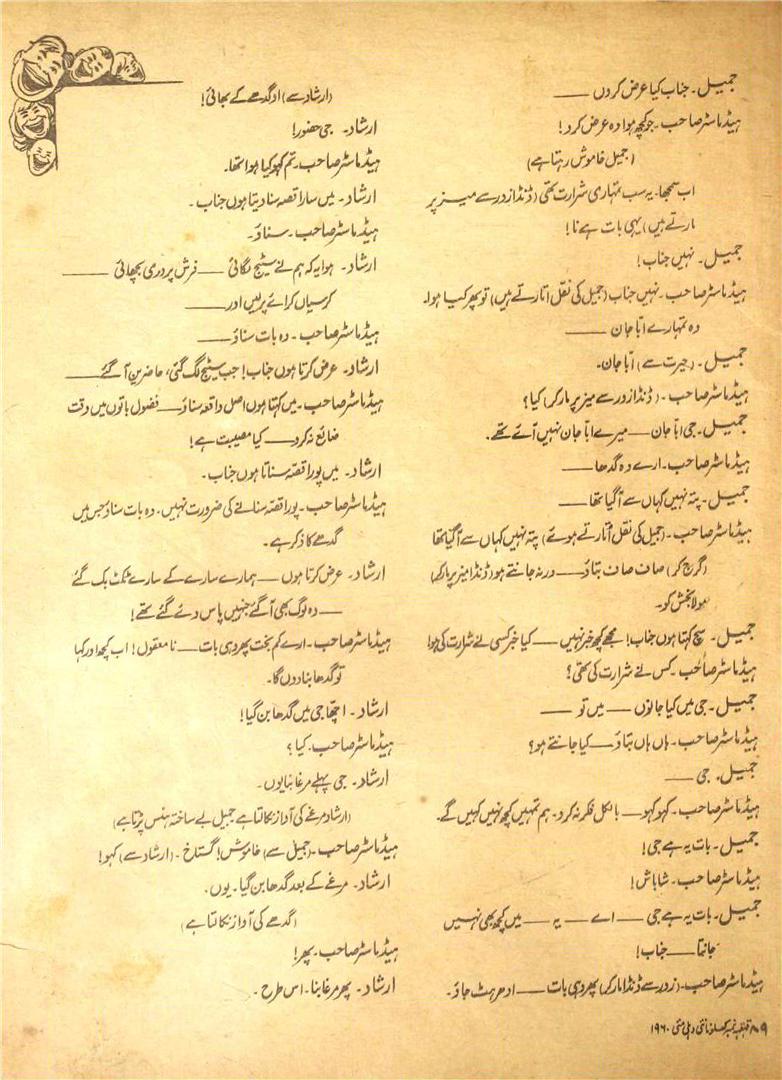 جمیل۔ جناب کیا عرض کروں ——
ہیڈماسٹر صاحب۔ جو کچھ ہوا وہ عرض کرو!
(جمیل خاموش رہتا ہے)
اب سمجھا۔ یہ سب تمہاری شرارت تھی (ڈنڈا زور سے میز پر
مارتے ہیں) یہی بات ہے نا!
جمیل۔ نہیں جناب!
ہیڈماسٹر صاحب۔ نہیں جناب (جمیل کی نقل اتارتے ہیں) تو پھر کیا ہوا۔
وہ تمہارے ابّا جان ——
جمیل۔ (حیرت سے) ابّا جان۔
ہیڈماسٹر صاحب۔ (ڈنڈا زور سے میز پر مار کر) کیا؟
جمیل۔ جی ابّا جان —— میرے ابّا جان نہیں آئے تھے۔
ہیڈماسٹر صاحب۔ ارے وہ گدھا ——
جمیل۔ پتہ نہیں کہاں سے آگیا تھا ——
ہیڈماسٹر صاحب۔ (جمیل کی نقل اُتارتے ہوئے) پتہ نہیں کہاں سے آگیا تھا
(گرج کر) صاف صاف بتاؤ —— ورنہ جانتے ہو (ڈنڈا میز پر مار کر)
مولا بخش کو۔
جمیل۔ سچ کہتا ہوں جناب! مجھے کچھ خبر نہیں —— کیا خبر کسی نے شرارت کی ہو!
ہیڈماسٹر صاحب۔ کس نے شرارت کی تھی؟
جمیل۔ جی میں کیا جانوں —— میں تو ——
ہیڈماسٹر صاحب۔ ہاں ہاں بتاؤ —— کیا جانتے ہو؟
جمیل۔ جی ——
ہیڈماسٹر صاحب۔ کہو کہو —— بالکل فکر نہ کرو۔ ہم تمہیں کچھ نہیں کہیں گے۔
جمیل۔ بات یہ ہے جی!
ہیڈماسٹر صاحب۔ شاباش!
جمیل۔ بات یہ ہے جی —— اے —— یہ —— میں کچھ بھی نہیں
جانتا —— جناب!
ہیڈماسٹر صاحب۔ (زور سے ڈنڈا مار کر) پھر وہی بات —— ادھر ہٹ جاؤ۔
(ارشاد سے) او گدھے کے بھائی!
ارشاد۔ جی حضور!
ہیڈماسٹر صاحب۔ تم کہو کیا ہوا تھا۔
ارشاد۔ میں سارا قصہ سنا دیتا ہوں جناب۔
ہیڈماسٹر صاحب۔ سناؤ۔
ارشاد۔ ہوا یہ کہ ہم نے سٹیج لگائی —— فرش پر دری بچھائی ——
کرسیاں کرائے پر لیں اور ——
ہیڈماسٹر صاحب۔ وہ بات سناؤ ——
ارشاد۔ عرض کرتا ہوں جناب! جب سٹیج لگ گئی، حاضرین آگئے ——
ہیڈماسٹر صاحب۔ میں کہتا ہوں اصل واقعہ سناؤ —— فضول باتوں میں وقت
ضائع نہ کرو —— کیا مصیبت ہے!
ارشاد۔ میں پورا قصّہ سناتا ہوں جناب۔
ہیڈماسٹر صاحب۔ پورا قصّہ سنانے کی ضرورت نہیں۔ وہ بات سناؤ جس میں
گدھے کا ذکر ہے۔
ارشاد۔ عرض کرتا ہوں —— ہمارے سارے کے سارے ٹکٹ بک گئے
—— وہ لوگ بھی آگئے جنہیں پاس دئے گئے تھے!
ہیڈماسٹر صاحب۔ ارے کم بخت پھر وہی بات —— نامعقول! اب کچھ اور کہا
تو گدھا بنا دوں گا۔
ارشاد۔ اچھّا جی میں گدھا بن گیا!
ہیڈماسٹر صاحب۔ کیا؟
ارشاد۔ جی پہلے مرغا بنا یوں۔
(ارشاد مرغے کی آواز نکالتا ہے جمیل بے ساختہ ہنس پڑتا ہے)
ہیڈماسٹر صاحب۔ (جمیل سے) خاموش! گستاخ۔ (ارشاد سے) کہو!
ارشاد۔ مرغے کے بعد گدھا بن گیا۔ یوں۔
(گدھے کی آواز نکالتا ہے)
ہیڈماسٹر صاحب۔ پھر!
ارشاد۔ پھر مرغا بنا۔ اس طرح۔
۸۹ قہقہہ نمبر کھلونا نئی دہلی مئی ۱۹۶۰